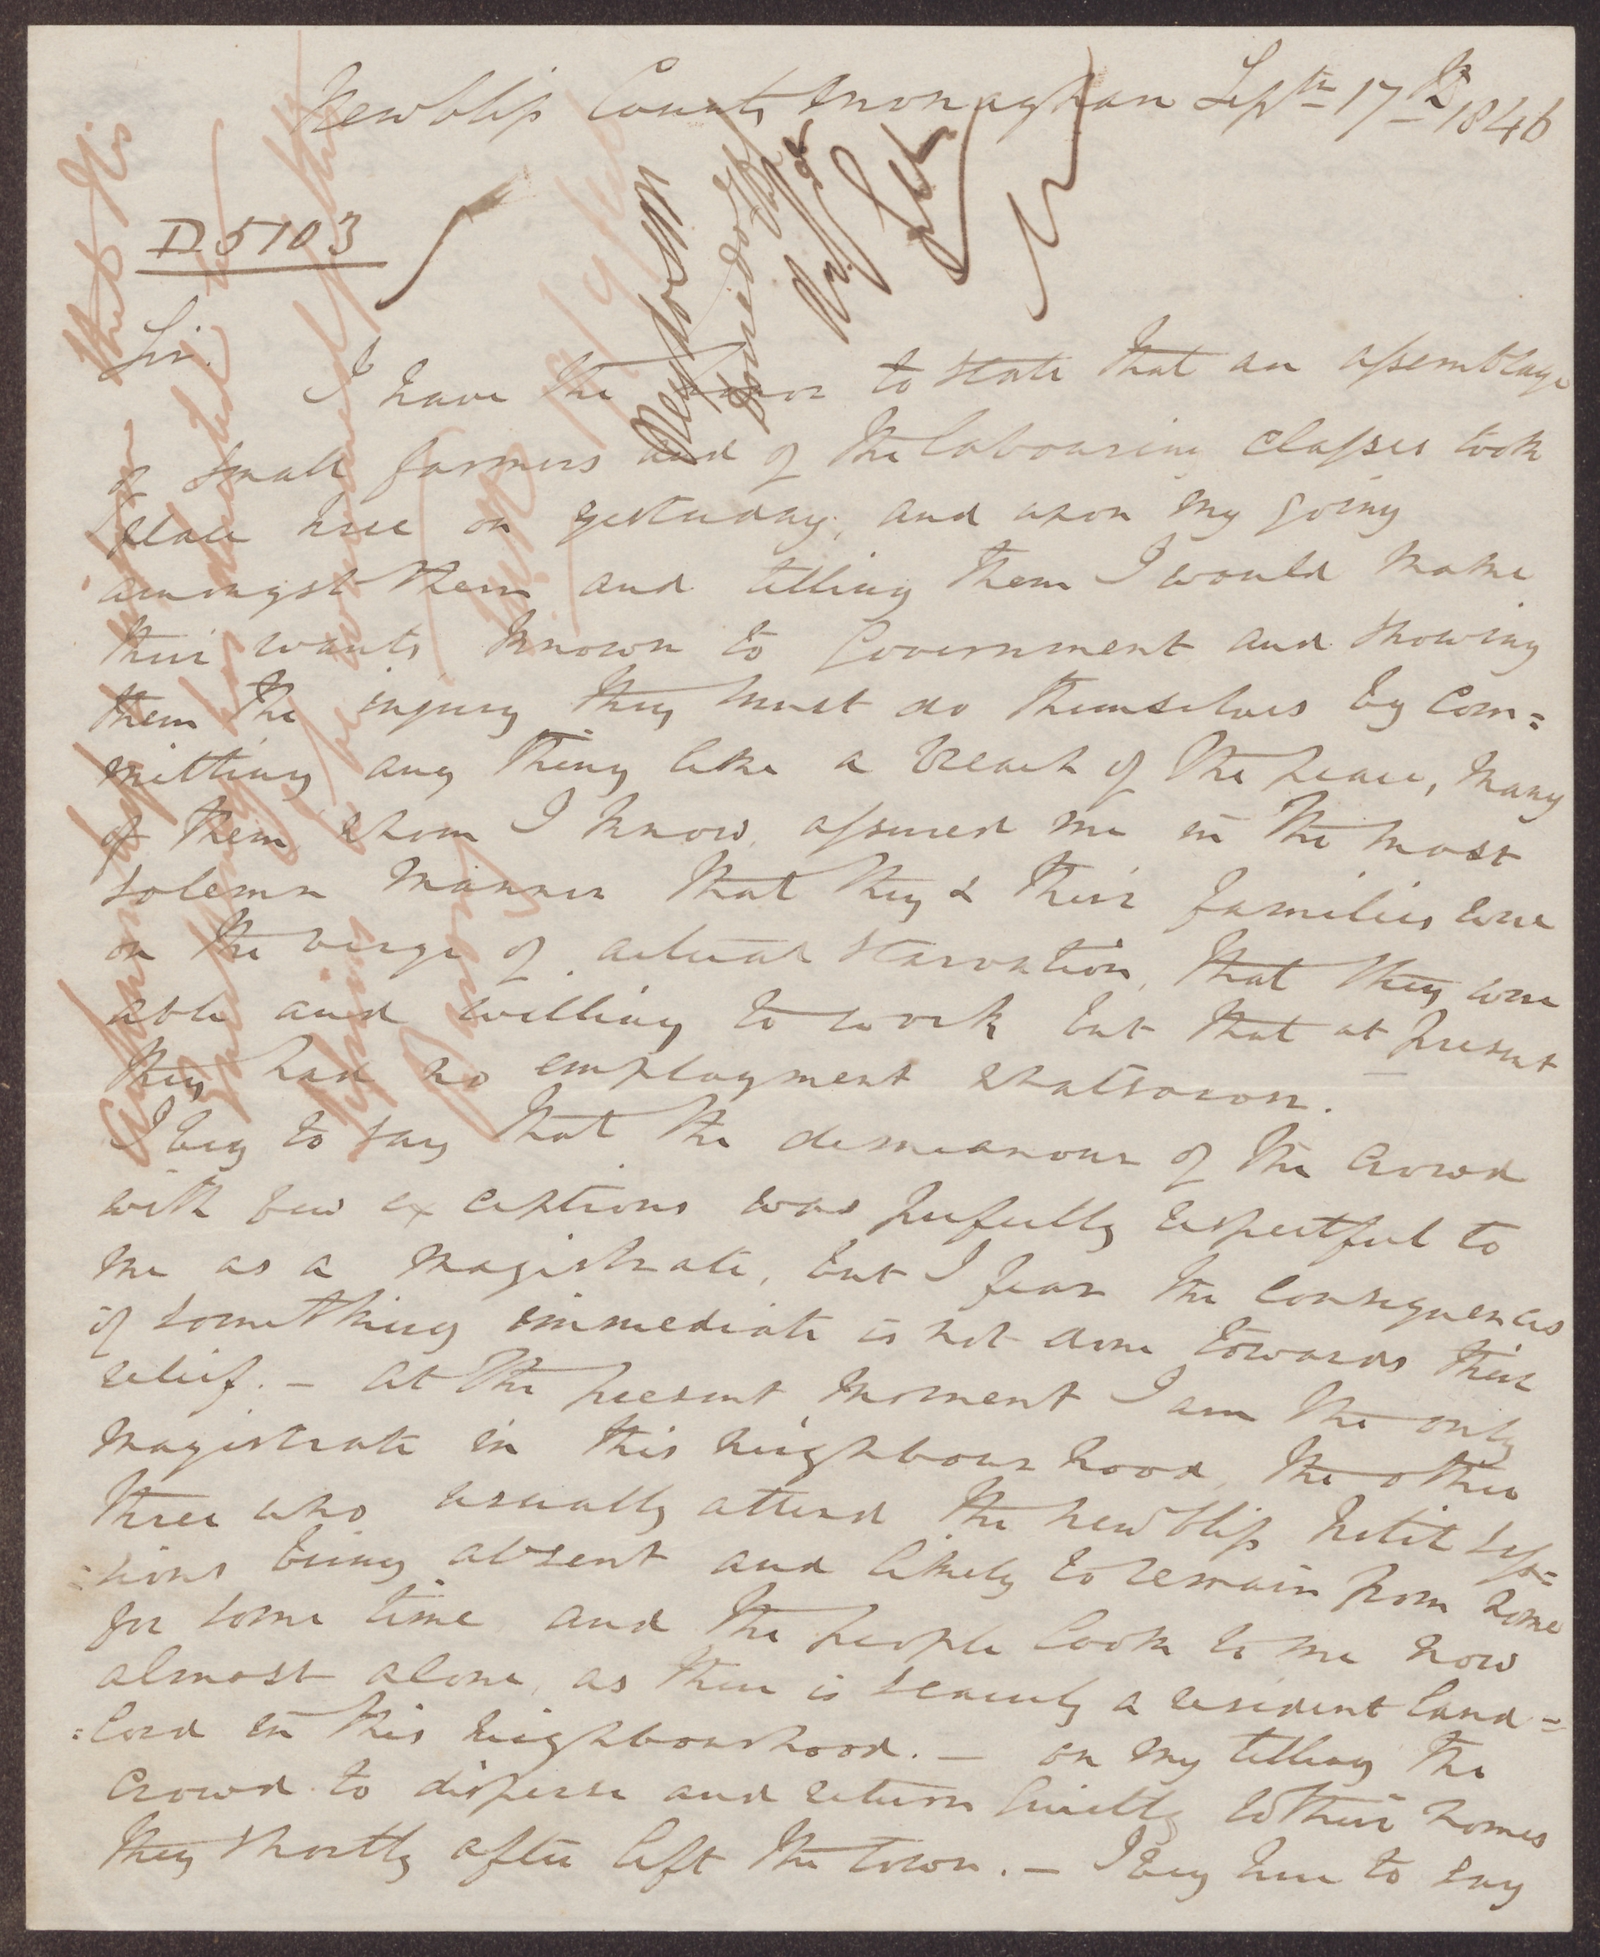 Newbliss County Monaghan Septr 17th 1846
D.5103
Sir.
I have the honor to state that an assemblage
of small farmers and of the labouring classes took
place here on yesterday, and upon my going
amongst them and telling them I would make
their wants known to Government and showing
them the injury they must do themselves by com=
mitting any thing like a breach of the peace, many
of them whom I know, assured me in the most
solemn manner that they & their families were
on the verge of actual starvation, that they were
able and willing to work but that at present
they had no employment whatsoever.
I beg to say that the demeanour of the crowd
with few exceptions was perfectly respectful to
me as a magistrate, but I fear the consequences
if something immediate is not done towards their
relief. – at the present moment I am the only
magistrate in this neighbourhood, the other
three who usually attend the Newbliss Petit Sess=
=sions being absent and likely to remain from home
for some time and the people look to me now
almost alone, as there is scarcely a resident land=
=lord in this neighbourhood. – on my telling the
crowd to disperse and return quietly to their homes
they shortly after left the town. – I beg here to say